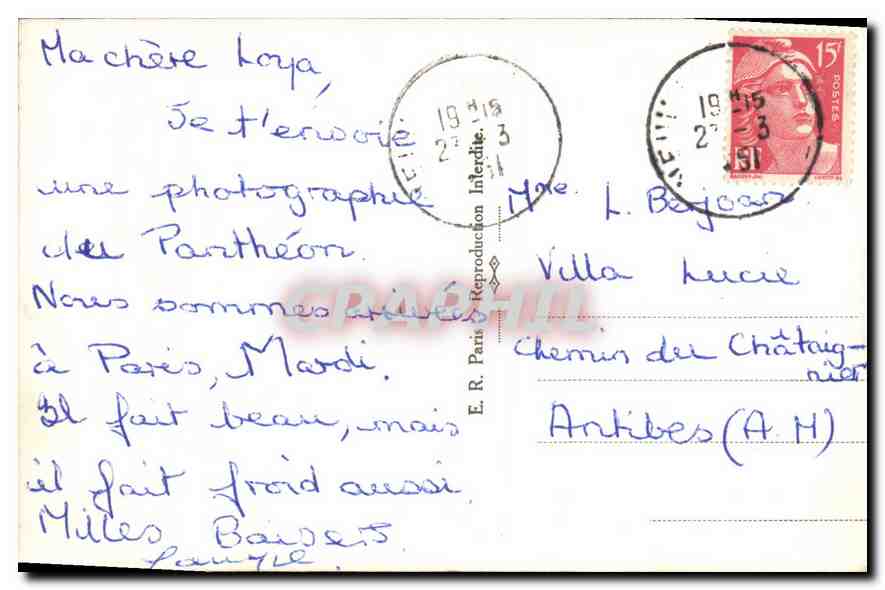 Ma chère Loya,
Je t'envoie
une photographie
du Panthéon.
Nous sommes arrivées
à Paris, Mardi.
Il fait beau, mais
il fait froid aussi.
Milles Baisers
19 H 15
-3
51
E. R. Paris Reproduction Interdite.
CPAPHIL
19 H 15
-3
51
15F
POSTES
RF
Mme. L. Berjoan
Villa Lucie
Chemin du Châtaig-
nier
Antibes (A.M)